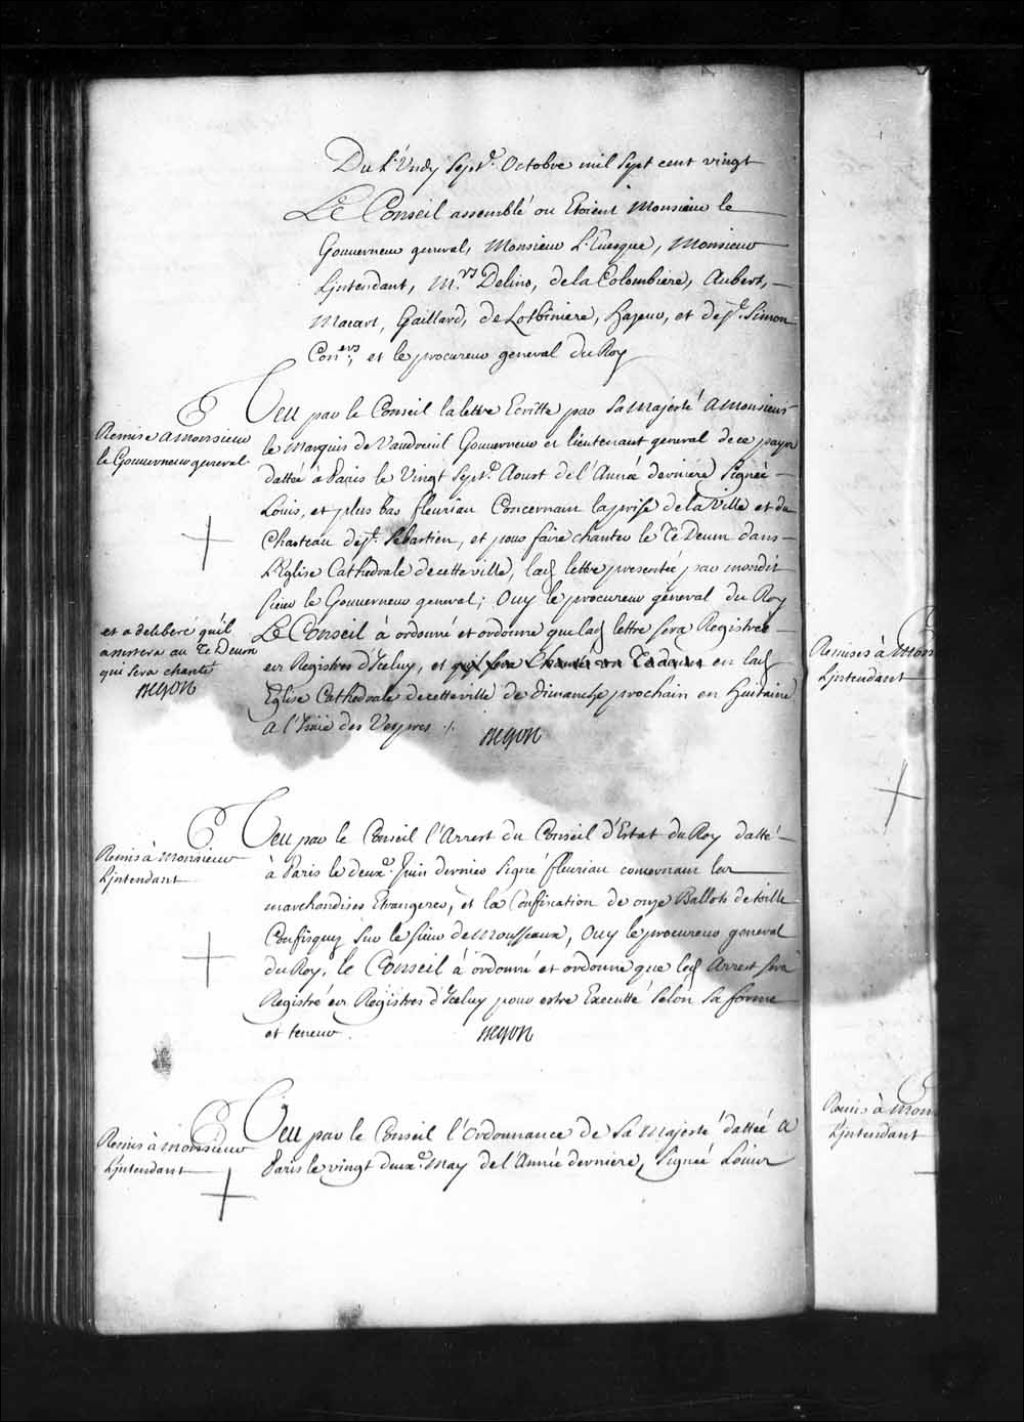 Du L'Undy Sept.e Octobre mil Sept cent vingt
Le Conseil assemblé ou Etoient Monsieur le
Gouverneur general, Monsieur L'Evesque, Monsieur
L'jntendant, M.rs Delino, de la Colombiere, Aubert,
Macart, Gaillard, de Lotbiniere, Hazeur, et de St. Simon
Con.ers, et le procureur general du Roy
Veu par le Conseil la lettre Ecritte par Sa Majesté A Monsieur
Remise a Monsieur
le Gouverneur general
le Marquis de Vaudreuil Gouverneur et lieutenant general de ce pays
dattée à Paris le Vingt Sept.e Aoust de l'Anné derniere Signée
Louis, et plus bas fleuriau Concernant la prise de la Ville et du
Chasteau de St. Sebastien, et pour faire chanter le Te Deum dans
L'Eglise Cathedrale de cette ville, lad. lettre presentée par mondit
sieur le Gouverneur general; Ouy le procureur general du Roy
Le Conseil à ordonné et ordonne que lad. lettre sera Registrée
et a deliberé qu'il
assistera au Te Deum
qui sera chanté
Begon
ez Registres d'Jceluy, et qu'il sera Chanté un Te Deum en lad.
Eglise Cathedrale de cette ville de dimanche prochain en huitaine
A l'Issüe des Vespres ./.
Begon
Veu par le Conseil l'Arrest du Conseil d'Estat du Roy datté
Remis à Monsieur
L'jntendant
à Paris le deux.e Juin dernier Signé fleuriau concernant les
marchandises Etrangeres, et la Confiscation de onze Ballots de toille
Confisquez sur le sieur de Mousseaux, Ouy le procureur general
du Roy, le Conseil à ordonné et ordonne que led. Arrest sera
Registré ez Registres d'Jceluy pour estre Executté Selon Sa forme
et teneur.
Begon
Veu par le Conseil l'Ordonnance de Sa Majesté dattée A
Remis à Monsieur
L'jntendant
Paris le vingt deux.e May de l'Année derniere, Signée Louis
Remises à Mon
L'jntendant
Remis à Mon
L'jntendant